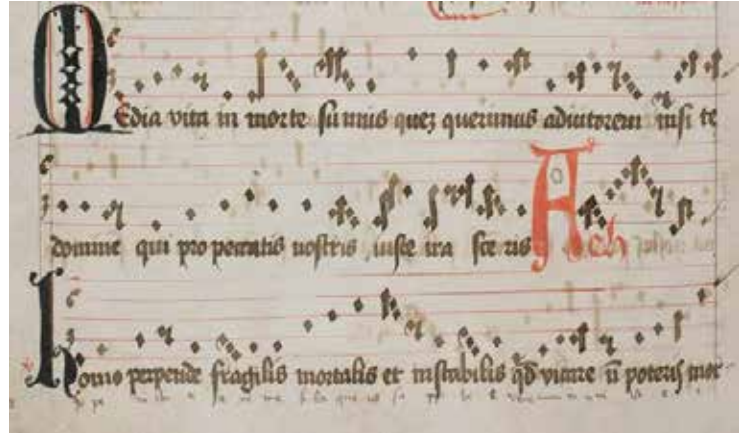 Media vita in morte sumus quez querimus adiutorem nisi te
domine qui pro peccatis nostris iuste ira sce ris Ach
homo perpende fragilis mortalis et instabilis qd vitare n poteris mor